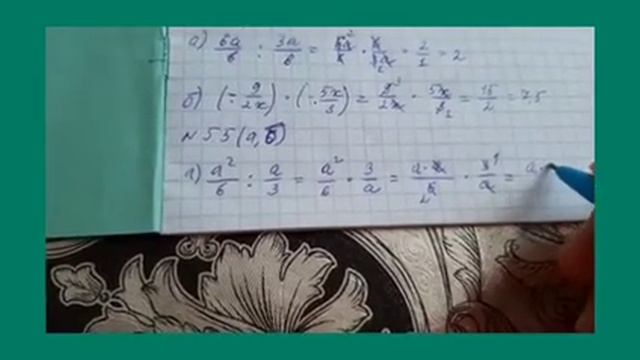 а) 6a/b : 3a/b = 6a²/b · b/3a₁ = 2/1 = 2
б) (- 9/2x) · (- 5x/3) = 9³/2x · 5x/3₁ = 15/2 = 7,5
№ 55 (а, б)
а) a²/6 : a/3 = a²/6 · 3/a = a·a/6₂ · 3¹/a = a